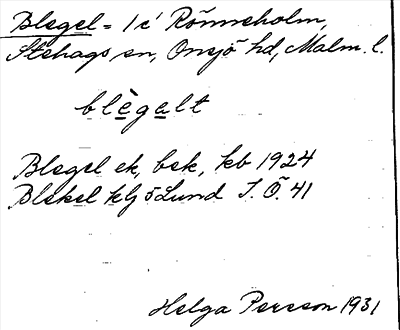 Blegel = 1 i Rönneholm,
Stehags sn, Onsjö hd, Malm. l.
blègalt
Blegel ek, bsk, kb 1924
Blekel klj ö Lund I. Ö. 41
Helga Persson 1931